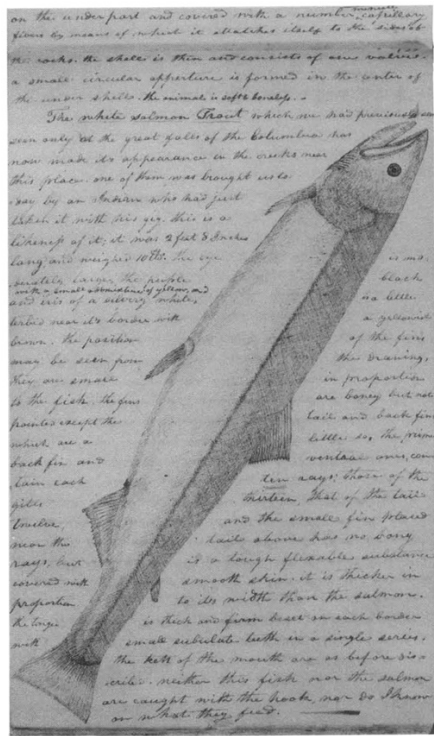 minute
on the under part and covered with a number capillary
fibers by means of which it attatches itself to the sides of
the rocks. the shell is thin and consists of one valve.
a small circular apperture is formed in the center of
the under shell. the animal is soft & boneless. -
The white salmon Trout which we had previously
seen only at the great falls of the Columbia has
now made it's appearance in the creeks near
this place. one of them was brought us to
day by an Indian who had just
taken it with his gig. this is a
likeness of it; it was 2 feet 8 Inches
long, and weighed 10 lbs. the eye is mo
derately large, the puple black
with a small admixture of yellow, and
and iris of a silvery white, is a little
terbid near it's border with a yellowish
brown. the position of the fins
may be seen from the drawing,
they are small in proportion
to the fish. the fins are boney but not
pointed except the tail and back fins
which are a little so, the prime
back fin and ventral ones, con
tain each ten rays; those of the
gills thirteen, that of the tail
twelve, and the small fin placed
near the tail above has no bony
rays, but is a tough flexable substance
covered with smooth skin. it is thicker in
proportion to it's width than the salmon.
the tongue is thick and firm beset on each border
with small subulate teeth in a single series.
the teeth of the mouth are as before dis-
cribed. neither this fish nor the salmon
are caught with the hook, nor do I know
on what they feed.